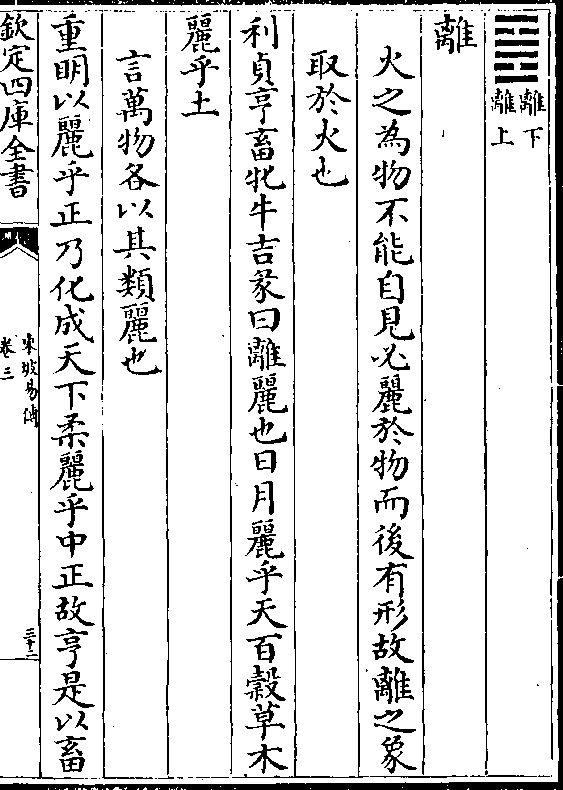 離下
離上
離
火之為物不能自見必麗於物而後有形故離之象
取於火也
利貞亨畜牝牛吉彖曰離麗也日月麗乎天百穀草木
麗乎土
言萬物各以其類麗也
重明以麗乎正乃化成天下柔麗乎中正故亨是以畜
欽定四庫全書
東坡易傳
卷三
三十二